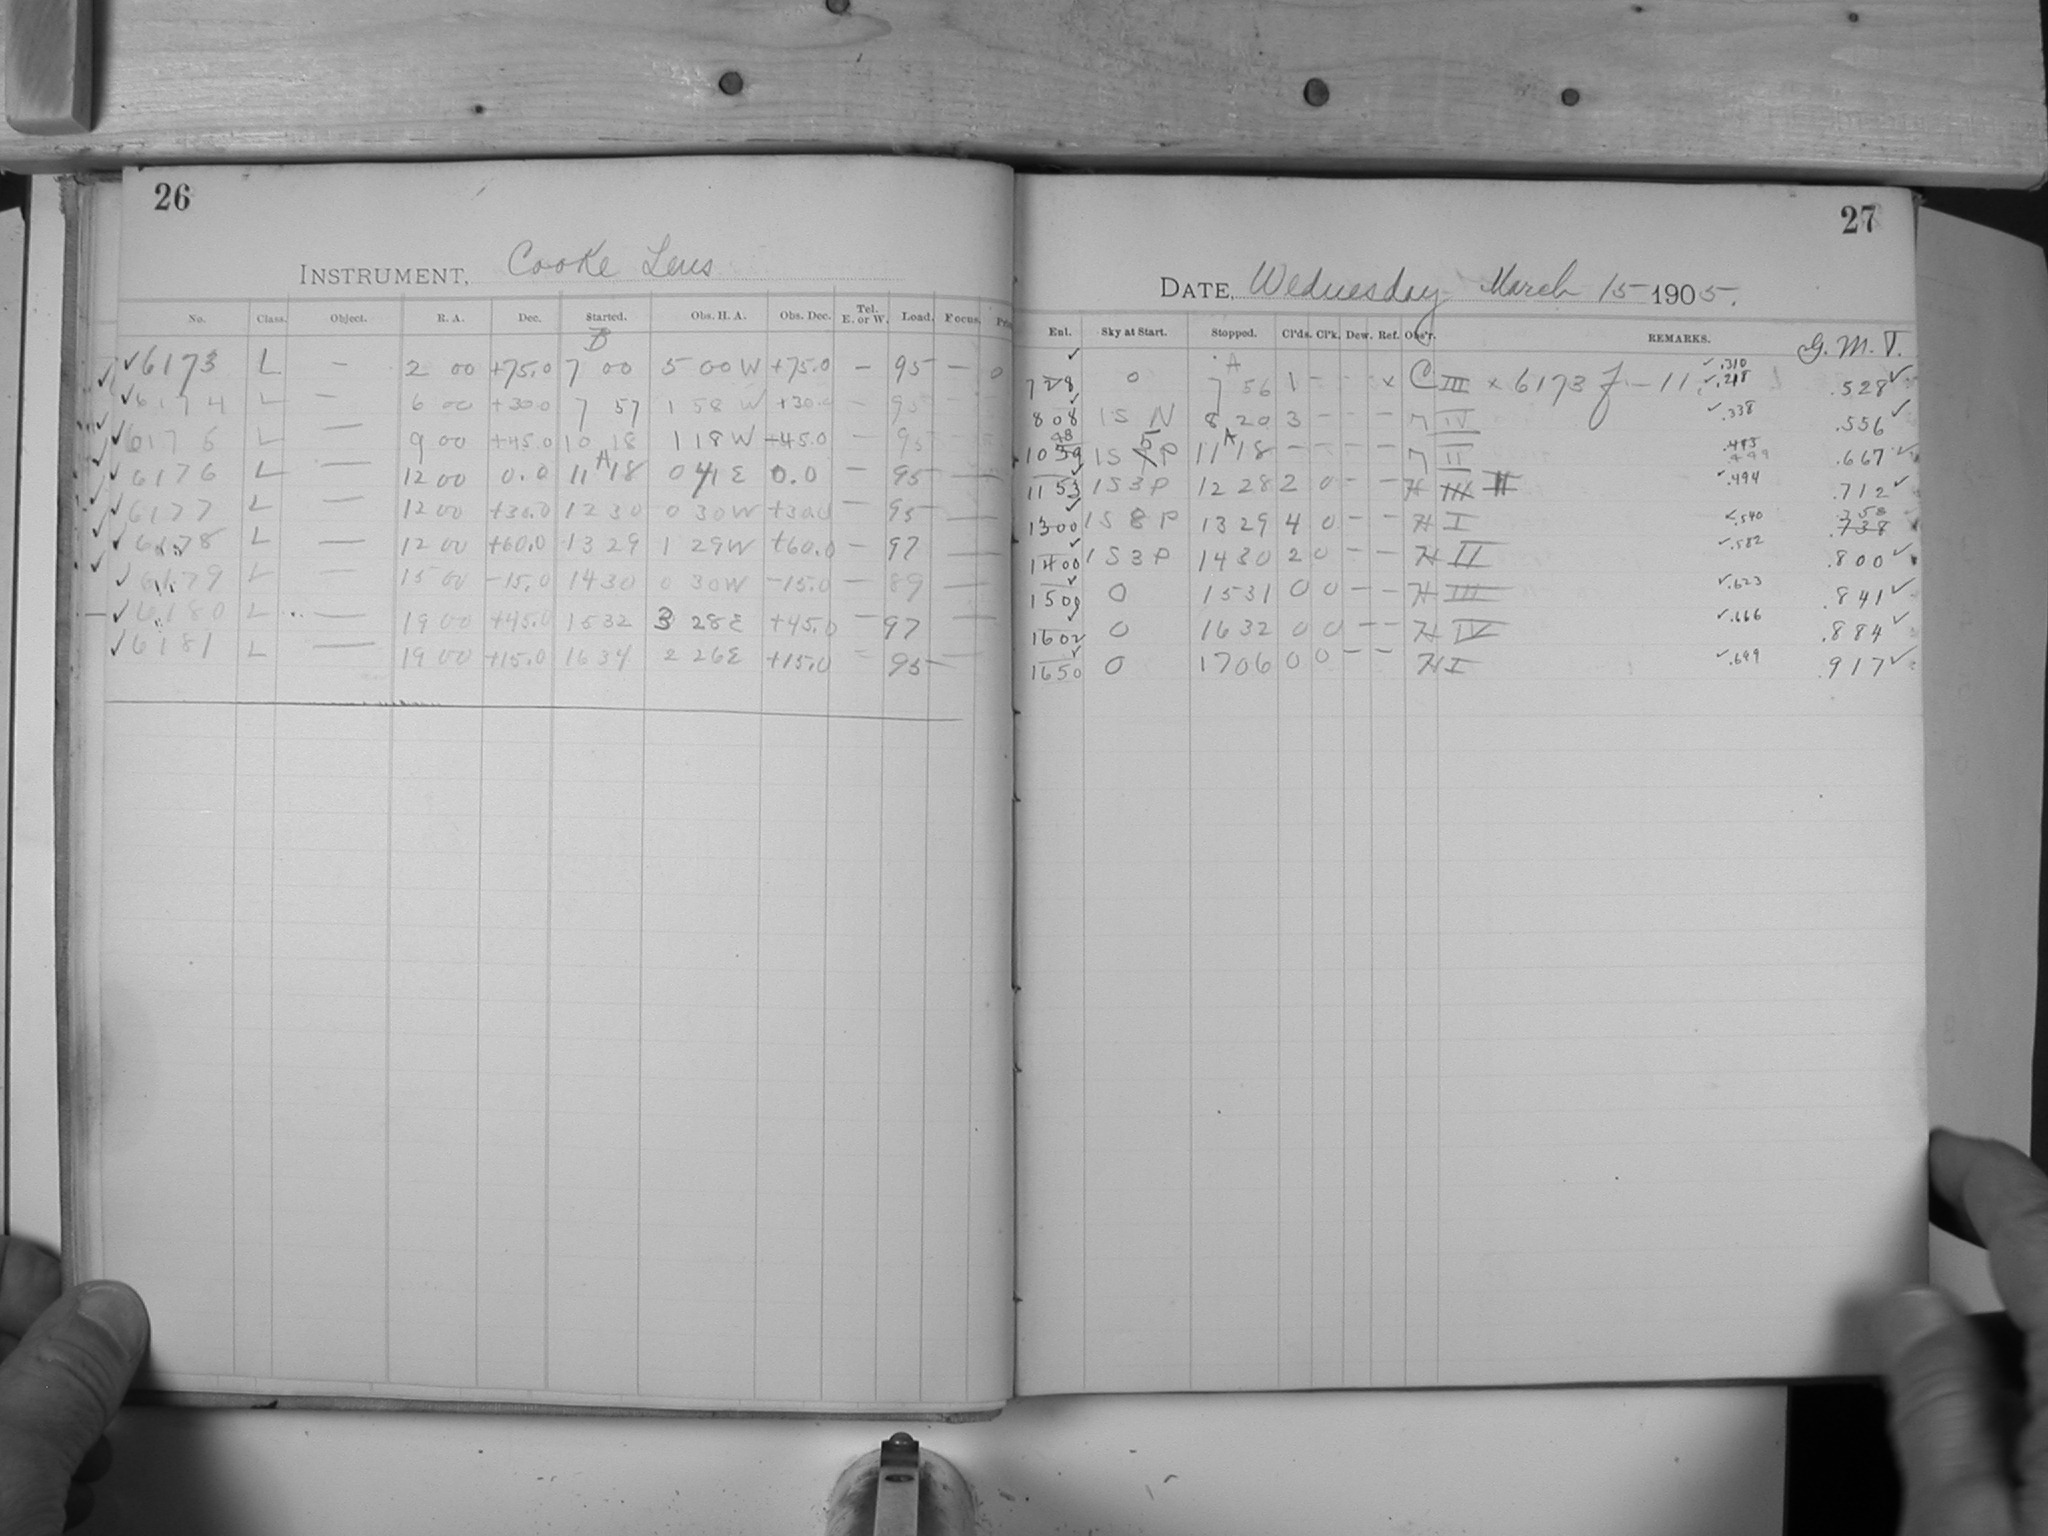 26
INSTRUMENT, Cooke Lens
No. Class. Object. R. A. Dec. Started. Obs. H. A. Obs. Dec. Tel. E. or W. Load. Focus.
B
✓6173 L — 2 00 +75.0 7 00 5 00 W +75.0 — 95 — 0
✓6174 L — 6 00 +30.0 7 57 1 58 W +30.0 — 95
✓6175 L — 9 00 +45.0 10 18 1 18 W +45.0 — 95
A
✓6176 L — 12 00 0.0 11 18 0 41 E 0.0 — 95 —
✓6177 L — 12 00 +30.0 12 30 0 30 W +30.0 — 95 —
✓6178 L — 12 00 +60.0 13 29 1 29 W +60.0 — 97 —
✓6179 L — 15 00 -15.0 14 30 0 30 W -15.0 — 89 —
✓6180 L — 19 00 +45.0 15 32 3 28 E +45.0 — 97 —
✓6181 L — 19 00 +15.0 16 34 2 26 E +15.0 — 95 —
27
DATE, Wednesday March 15 1905.
Enl. Sky at Start. Stopped. Cl'ds. Cl'k. Dew. Ref. Obs'r. REMARKS. G. M. T.
✓ A ✓.310
7 28 0 7 56 1 - - x C III x 6173 f — 11. ✓.218 .528✓
8 08 1S N 8 20 3 - - - IV ✓.338 .556✓
48 5 A
10 59 1S P 11 18 - - - - II .667✓
11 53 1S3P 12 28 2 0 - - H III II ✓.494 .712✓
13 00 1S8P 13 29 4 0 - - H I ✓.540 .758 .738
14 00 1S3P 14 30 2 0 - - H II ✓.582 .800✓
15 00 0 15 31 0 0 - - H III ✓.623 .841✓
16 02 0 16 32 0 0 - - H IV ✓.666 .884✓
16 50 0 17 06 0 0 - - H I ✓.699 .917✓